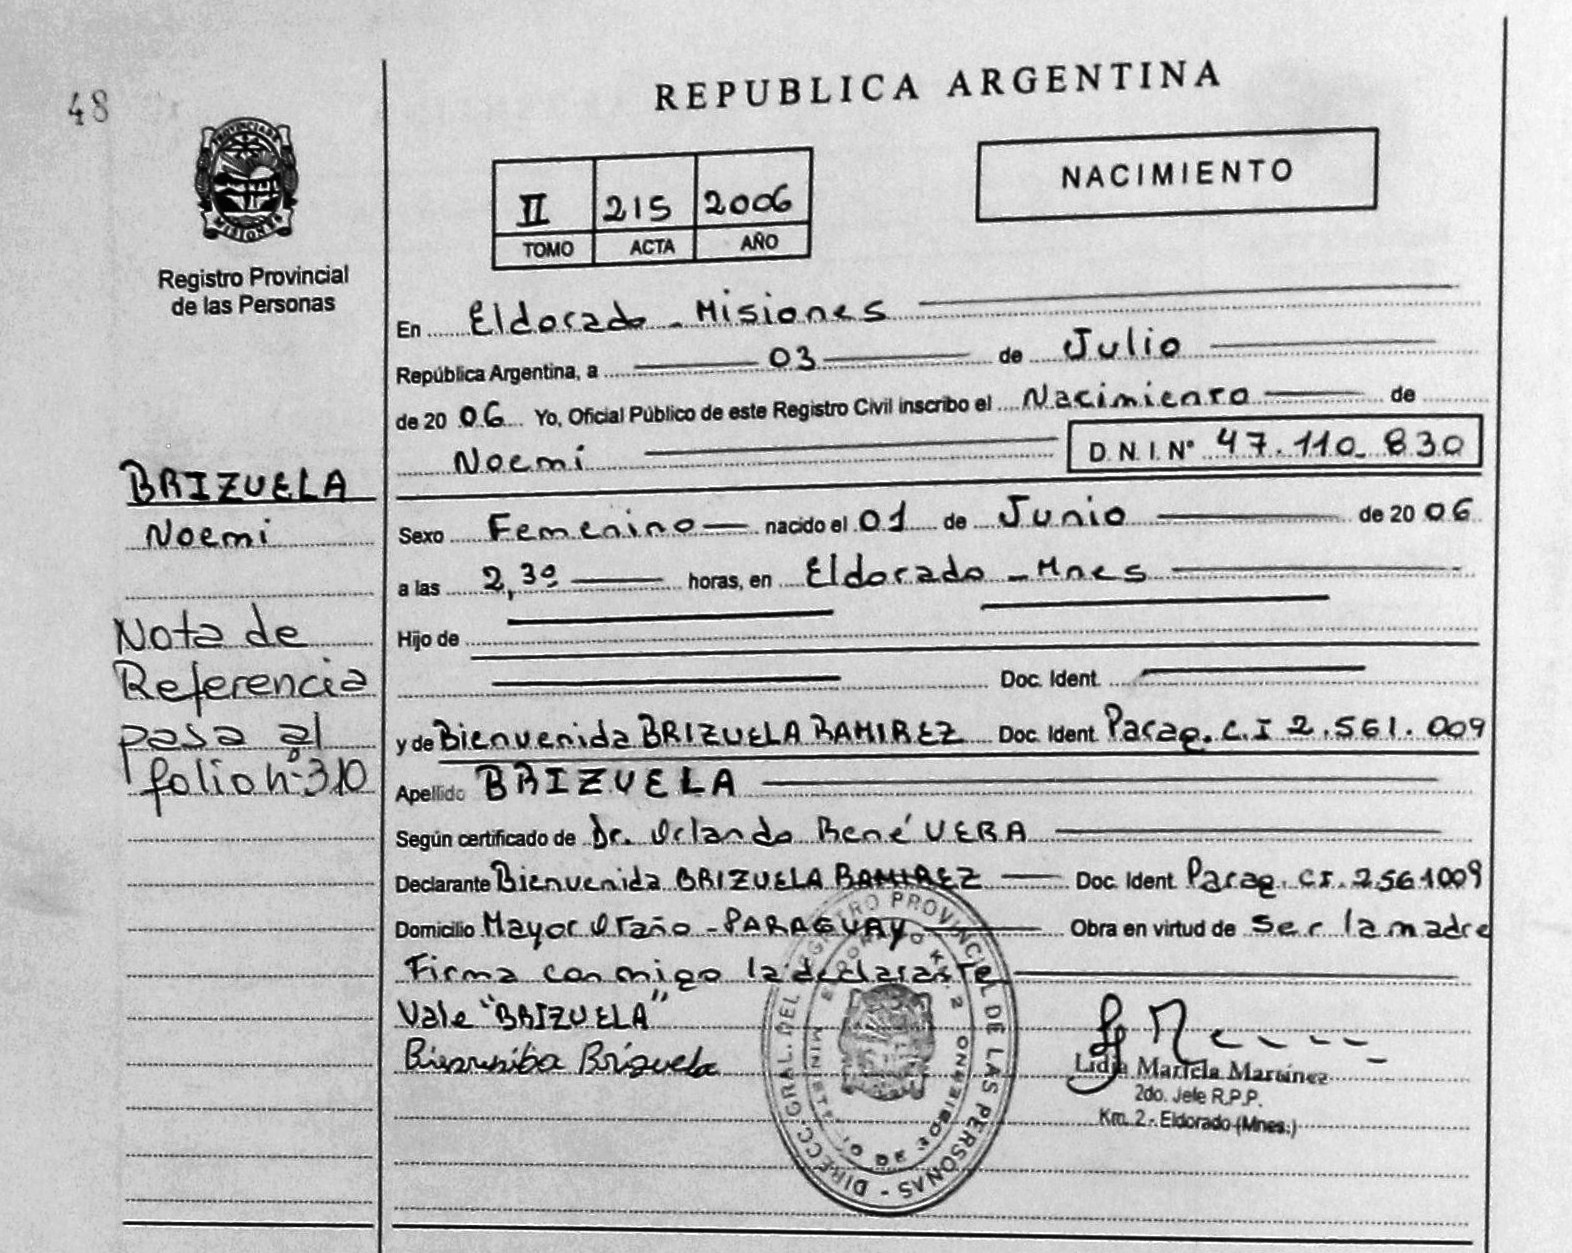 48
REPUBLICA ARGENTINA
PROVINCIA DE
MISIONES
Registro Provincial
de las Personas
II 215 2006
TOMO ACTA AÑO
NACIMIENTO
En Eldorado - Misiones
República Argentina, a 03 de Julio
de 2006 Yo, Oficial Público de este Registro Civil inscribo el Nacimiento de
Noemi D. N. I. Nº 47.110.830
BRIZUELA
Noemi
Nota de
Referencia
pasa al
folio nº 310
Sexo Femenino nacido el 01 de Junio de 2006
a las 2,30 horas, en Eldorado - Mnes
Hijo de
Doc. Ident.
y de Bienvenida BRIZUELA RAMIREZ Doc. Ident. Parag. C.I 2.561.009
Apellido BRIZUELA
Según certificado de Dr. Orlando René VERA
Declarante Bienvenida BRIZUELA RAMIREZ Doc. Ident. Parag. CI. 2561009
Domicilio Mayor Otaño - PARAGUAY Obra en virtud de Ser la madre
Firma conmigo la declarante
Vale "BRIZUELA"
Brizuela
DIRECC. GRAL. DEL REGISTRO PROVINCIAL DE LAS PERSONAS
ELDORADO KM. 2
Lidia Mariela Martinez
2do. Jefe R.P.P.
Km. 2 - Eldorado (Mnes.)